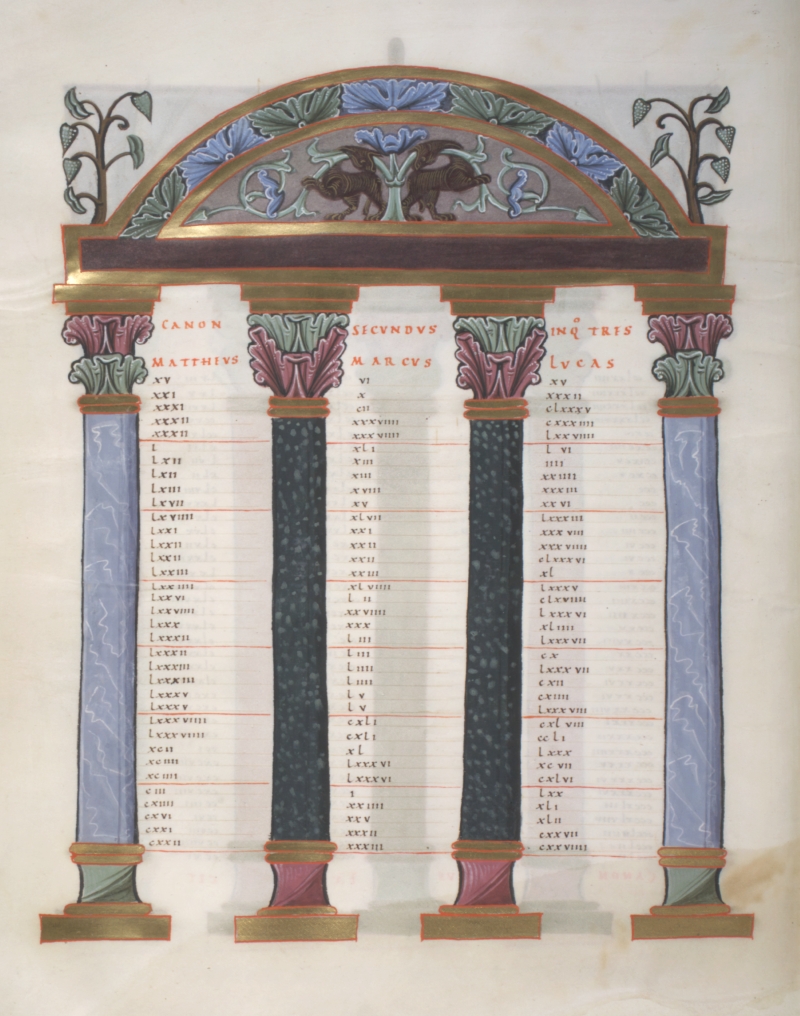 CANON SECVNDVS INQo TRES
MATTHEVS MARCVS LVCAS
xv vi xv
xxi x xxxii
xxxi cii clxxxv
xxxii xxxviiii cxxxiiii
xxxii xxxviiii lxxviiii
l xli lvi
lxii xiii iiii
lxii xiii xxiiii
lxiii xviii xxxiii
lxvii xv xxvi
lxviiii xlvii lxxxiii
lxxi xxi xxxviii
lxxii xxii xxxviiii
lxxii xxii clxxxvi
lxxiii xxiii xl
lxxiiii xlviiii lxxxv
lxxvi lii clxviiii
lxxviiii xxviiii lxxxvi
lxxx xxx xliiii
lxxxii liii lxxxvii
lxxxii liii cx
lxxxiii liiii lxxxvii
lxxxiii liiii cxii
lxxxv lv cxiiii
lxxxv lv lxxxviii
lxxxviiii cxli cxlviii
lxxxviiii cxli ccli
xcii xl lxxx
xciiii lxxxvi xcvii
xciiii lxxxvi cxlvi
ciii i lxx
cxiiii xxiiii xli
cxvi xxv xlii
cxxi xxxii cxxvii
cxxii xxxiii cxxviiii